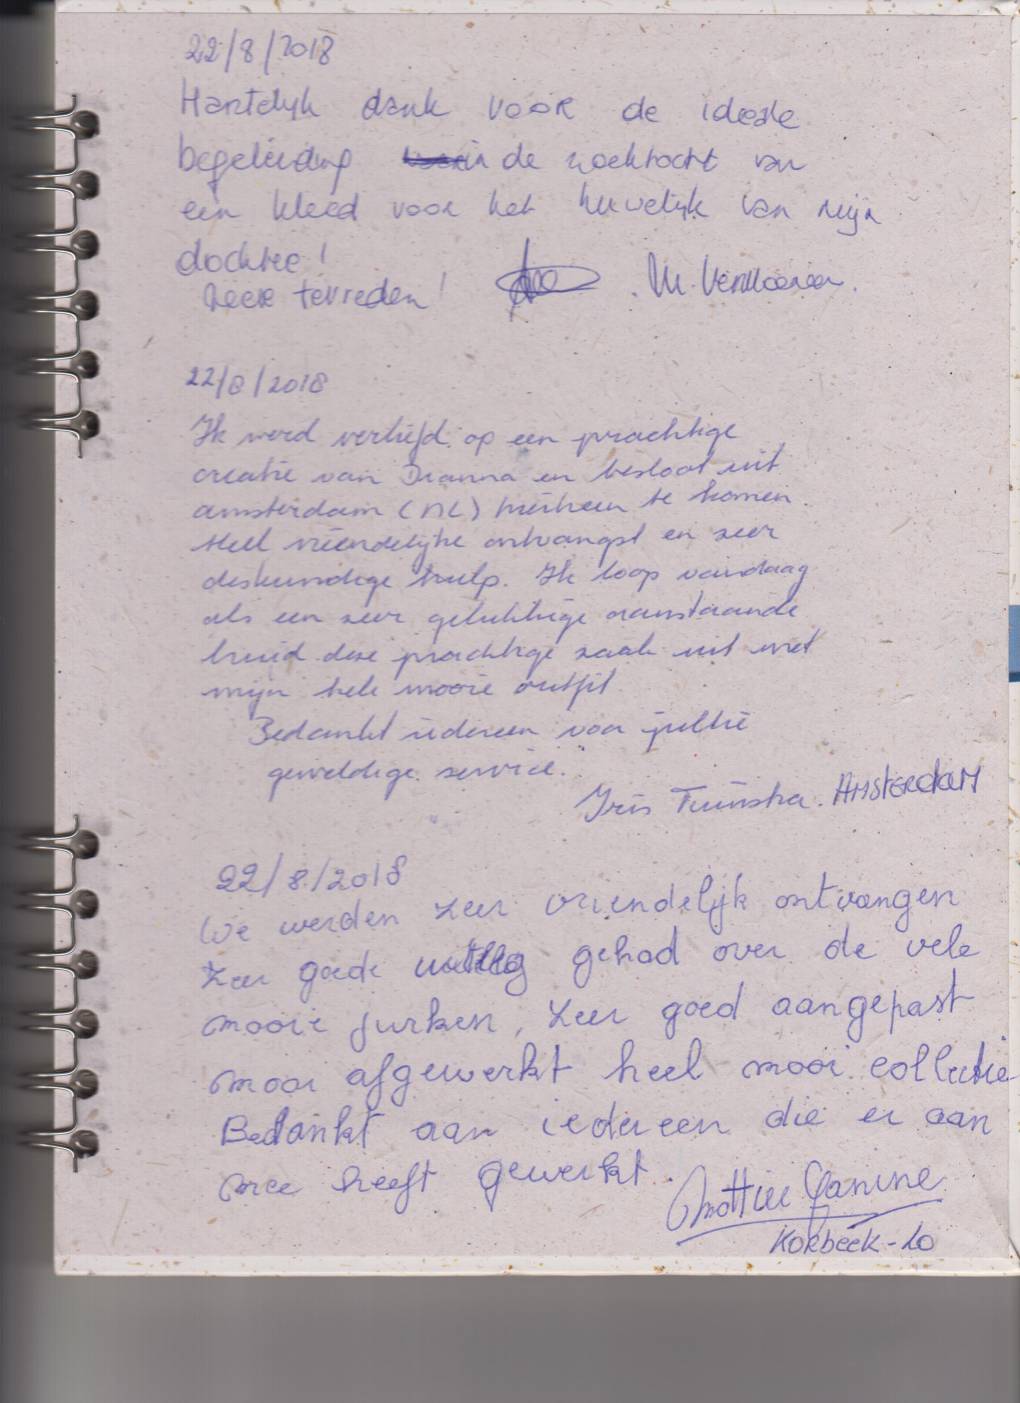 22/8/2018
Hartelijk dank voor de ideale
begeleiding in de zoektocht van
een kleed voor het huwelijk van mijn
dochter!
Zeer tevreden!
22/8/2018
Ik werd verliefd op een prachtige
creatie van Dianna en besloot uit
amsterdam (NL) hierheen te komen.
Heel vriendelijke ontvangst en zeer
deskundige hulp. Ik loop vandaag
als een zeer gelukkige aanstaande
bruid deze prachtige zaak uit met
mijn hele mooie outfit
Bedankt iedereen voor jullie
geweldige service.
Iris Tuinstra. AMSTERDAM
22/8/2018
We werden zeer vriendelijk ontvangen
zeer goede uitleg gehad over de vele
mooie jurken, zeer goed aangepast
mooi afgewerkt heel mooi collectie
Bedankt aan iedereen die er aan
mee heeft gewerkt.
Janine
Korbeek-Lo